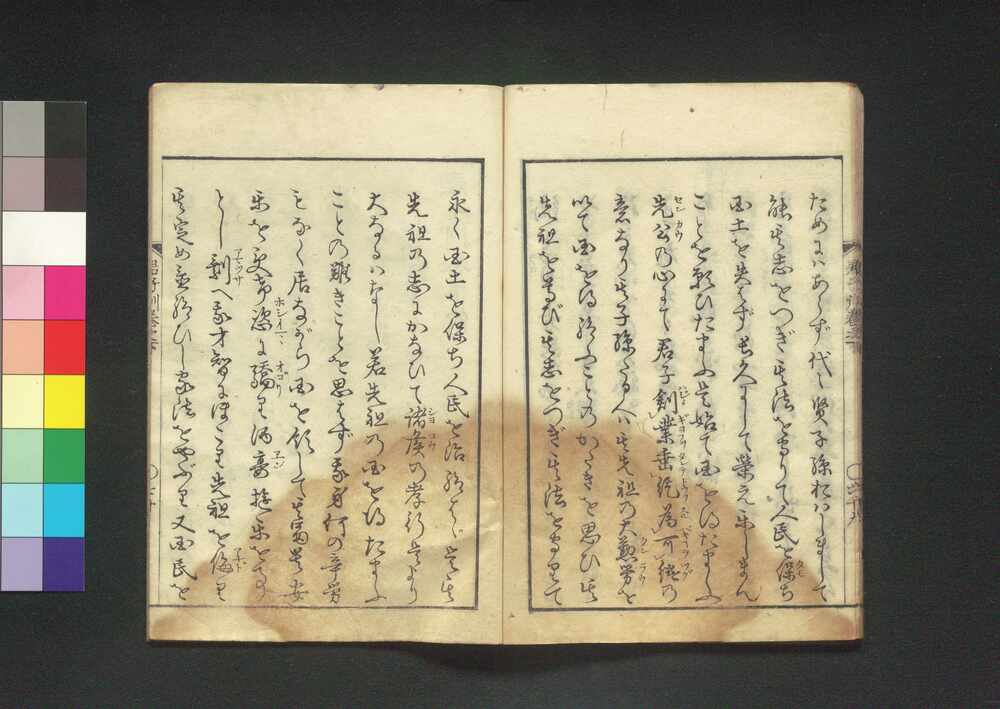 ためにハあらず代々賢子孫おハしまして
能其志をつぎ其法を守りて人民を保ち
国土を失ハず長久にして栄え楽しまん
ことを願ひたまふ是始て国を得たまふ
先公の心にて君子創業垂統為可継の
意なり其子孫たる人ハ其先祖の大勲労を
以て国を得給ふことのかたきを思ひ其
先祖を尊び其志をつぎ其法を守りて
永く国土を保ち人民を治給ふは是其
先祖の志にかなひて諸侯の孝行是より
大なるハなし若先祖の国を得たまふ
ことの難きことを思ハず我身何の辛労
もなく居ながら国を領して其富貴安
楽を受け恣に驕り酒宴遊楽を事
とし剰へ我才智にほこり先祖を侮り
其定め置給ひし家法をやぶり又国民を